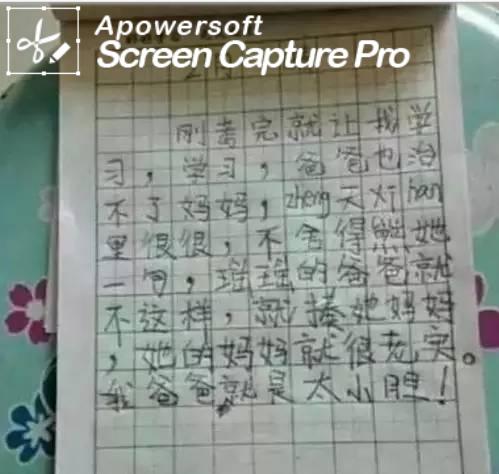 Apowersoft
Screen Capture Pro
刚完就让我学
习，学习，爸爸也治
不了妈妈，zheng天xi han
里很很，不舍得熊她
一句，瑶瑶的爸爸就
不这样，就揍她妈妈
，她的妈妈就很老实。
我爸爸就是太小胆！